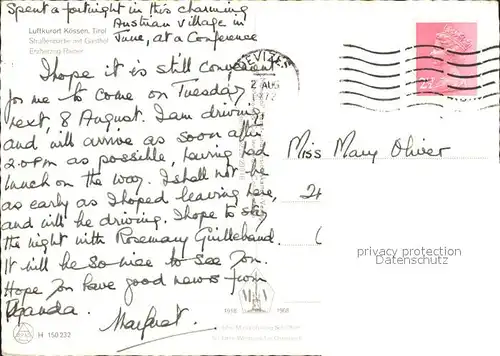 Spent a fortnight in this charming
Austrian Village in
June, at a Conference
Luftkurort Kössen, Tirol
Straßenpartie mit Gasthof
Erzherzog Rainer
I hope it is still convenient
for me to come on Tuesday
next, 8 August. I am driving,
and will arrive as soon after
2.0 pm as possible, having had
lunch on the way. I shall not be
as early as I hoped leaving here,
and will be driving. I hope to stay
the night with Rosemary Guillebaud.
It will be so nice to see you.
Hope you have good news from
Uganda.
Margaret
DEVIZES
2 AUG
1972
2½
Miss Mary Oliver
24
privacy protection
Datenschutz
H 150 232
1938
1968